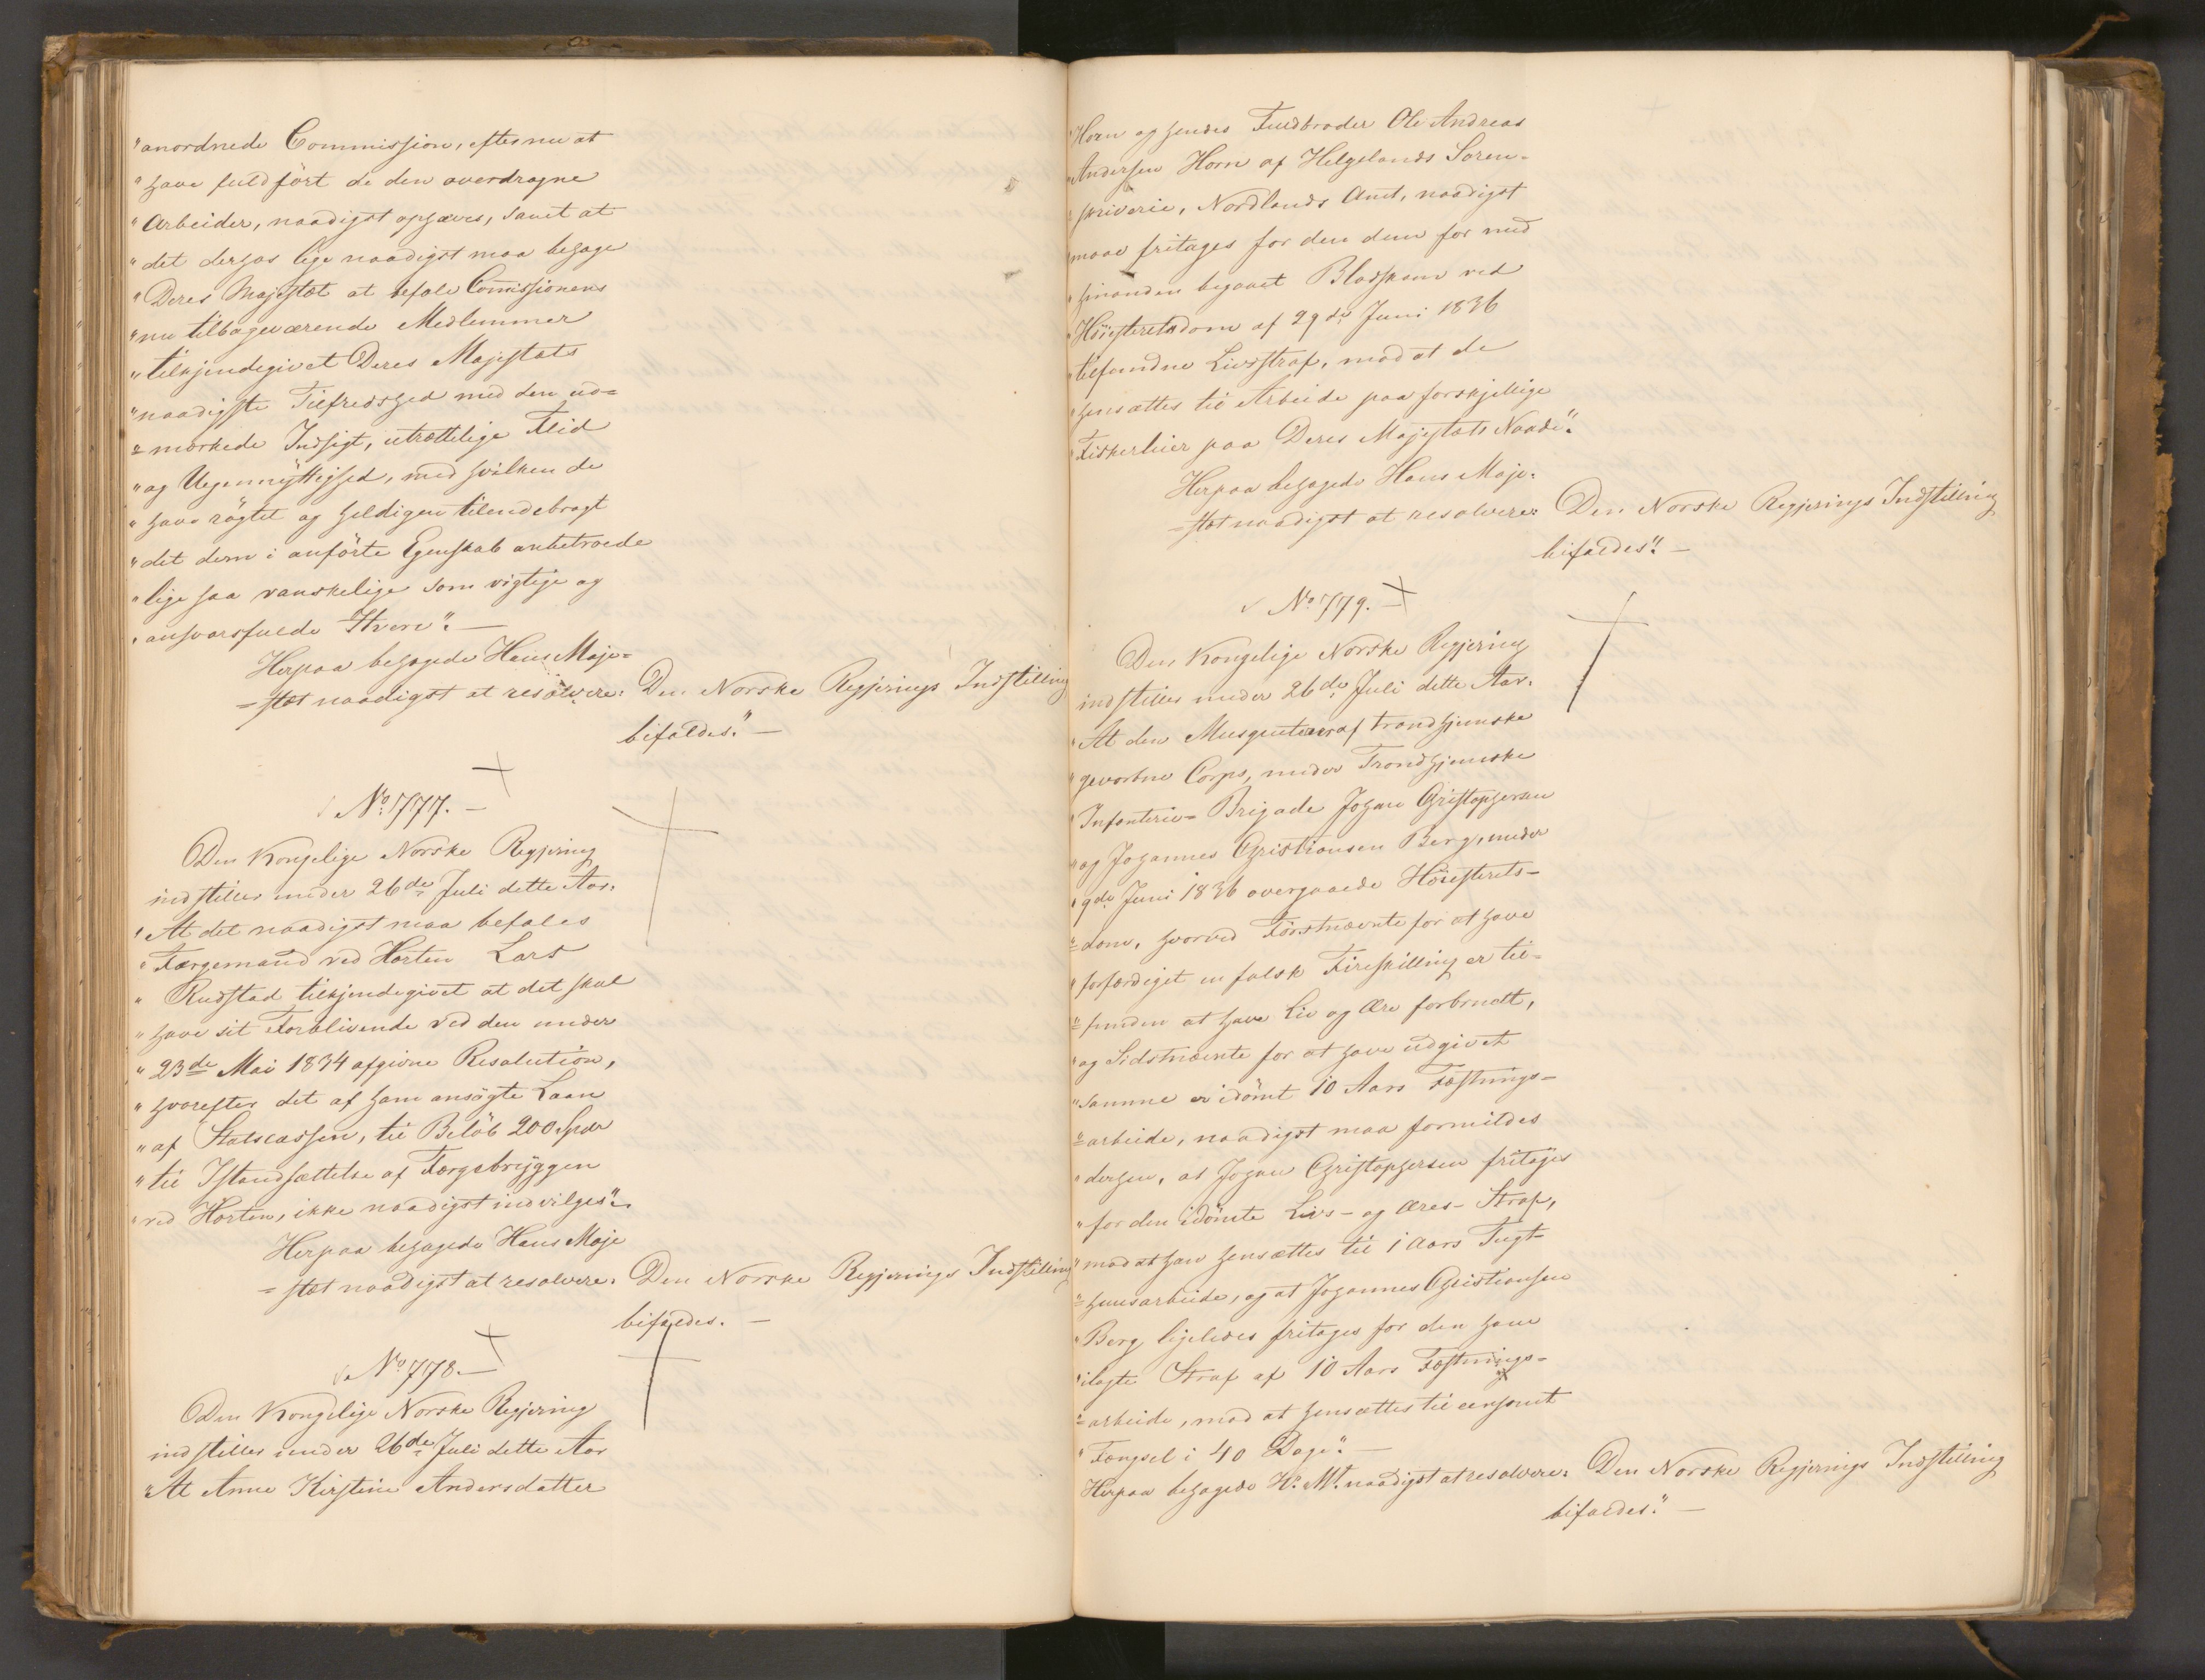 "anordnede Commission, efter nu at
"have fuldført de den overdragne
"Arbeider, naadigst ophæves, samt at
"det derhos lige naadigst maa behage
"Deres Majestæt at befale Comissionens
"nu tilbageværende Medlemmer
"tilkjendegivet Deres Majestæts
"naadigste Tilfredshed med den ud=
"=mærkede Indsigt, utrættelige Flid
"og Uegennyttighed, med hvilken de
"have røgtet og heldigen tilendebragt
"det dem i anførte Egenskab anbetroede
"lige saa vanskelige som vigtige og
"ansvarsfulde Hverv". —
Herpaa behagede Hans Maje=
=stæt naadigst at resolvere: Den Norske Regjerings Indstilling
bifaldes." —
No 777. —
Den Kongelige Norske Regjering
indstiller under 26de Juli dette Aar.
"At det naadigst maa befales
"Færgemand ved Horten Lars
"Rudstad tilkjendegivet at det skal
"have sit Forblivende ved den under
"23de Mai 1834 afgivne Resolution,
"hvorefter det af ham ansøgte Laan
"af Statscassen, til Beløb 200 Spdr
"til Istandsættelse af Færgebryggen
"ved Horten, ikke naadigst indvilges".
Herpaa behagede Hans Maje
=stæt naadigst at resolvere. Den Norske Regjerings Indstilling
bifaldes. —
No 778. —
Den Kongelige Norske Regjering
indstiller under 26de Juli dette Aar
"At Anne Kirstine Andersdatter
"Horn og hendes Fuldbroder Ole Andreas
"Andersen Horn af Helgelands Soren-
"skriverie, Nordlands Amt, naadigst
"maae fritages for den dem for med
"hinanden begaaet Blodskam ved
"Høiesteretsdom af 29de Juni 1836
"tilfundne Livsstraf, mod at de
"hensættes til Arbeide paa forskjellige
"Fiskerleier paa Deres Majestæts Naade".
Herpaa behagede Hans Maje-
=stæt naadigst at resolvere: Den Norske Regjerings Indstilling
bifaldes". —
No 779. —
Den Kongelige Norske Regjering
indstiller under 26de Juli dette Aar.
"At den Musqueterer af trondhjemske
"gevorbne Corps, under Trondhjemske
"Infanterie= Brigade Johan Christophersen
"og Johannes Christiansen Berg, under
"9de Juni 1836 overgaaede Høiesterets-
"=dom, hvorved Førstnævnte for at have
"forfærdiget en falsk Fireskilling er til-
"=funden at have Liv og Ære forbrudt,
"og Sidstnævnte for at have udgivet
"samme er idømt 10 Aars Fæstnings-
"=arbeide, naadigst maa formildes
"derhen, at Johan Christophersen fritages
"for den idømte Livs- og Æres- Straf,
"mod at han hensættes til 1 Aars Tugt-
"=huusarbeide, og at Johannes Christiansen
"Berg ligeledes fritages for den ham
"ilagte Straf af 10 Aars Fæstnings-
"=arbeide, mod at hensættes til eensomt
"Fængsel i 40 Dage". —
Herpaa behagede Hs. Mt. naadigst at resolvere: Den Norske Regjerings Indstilling
bifaldes." —